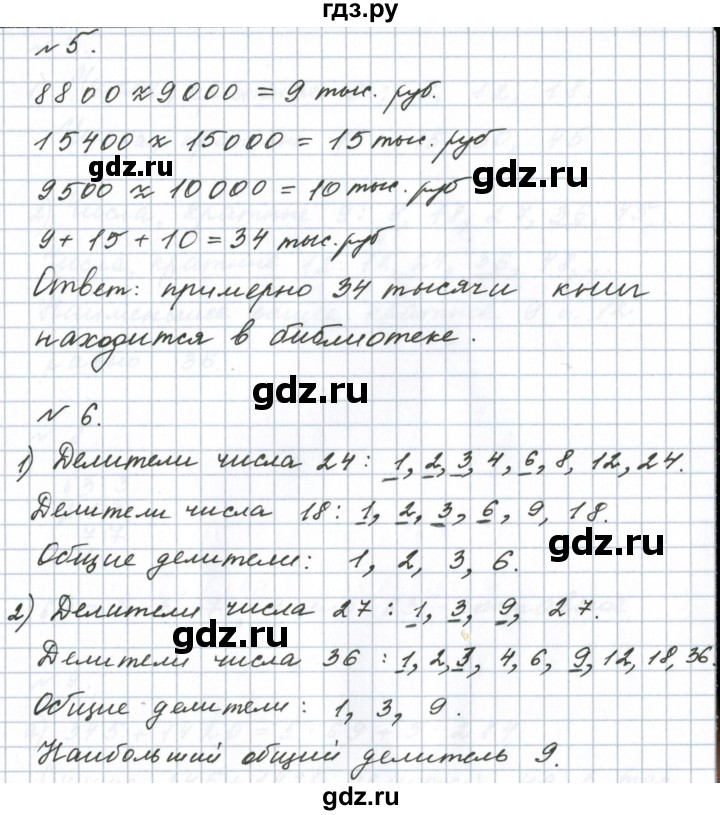 гдз.ру
№ 5.
8800 ≈ 9000 = 9 тыс. руб.
15400 ≈ 15000 = 15 тыс. руб
gdz.ru
gdz.ru
9500 ≈ 10 000 = 10 тыс. руб
9 + 15 + 10 = 34 тыс. руб
Ответ: примерно 34 тысячи книг
находится в библиотеке.
gdz.ru
№ 6.
1) Делители числа 24: 1, 2, 3, 4, 6, 8, 12, 24.
Делители числа 18: 1, 2, 3, 6, 9, 18.
gdz.ru
Общие делители: 1, 2, 3, 6.
2) Делители числа 27: 1, 3, 9, 27.
gdz.ru
Делители числа 36: 1, 2, 3, 4, 6, 9, 12, 18, 36.
Общие делители: 1, 3, 9.
Наибольший общий делитель 9.
gdz.ru